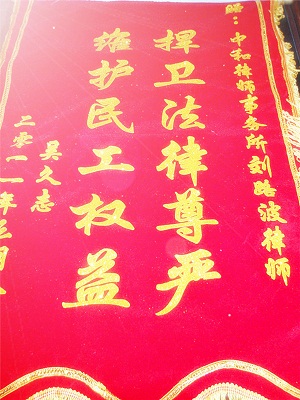 赠：中和律师事务所刘路波律师
捍卫法律尊严
维护民工权益
吴久志
二零一一年